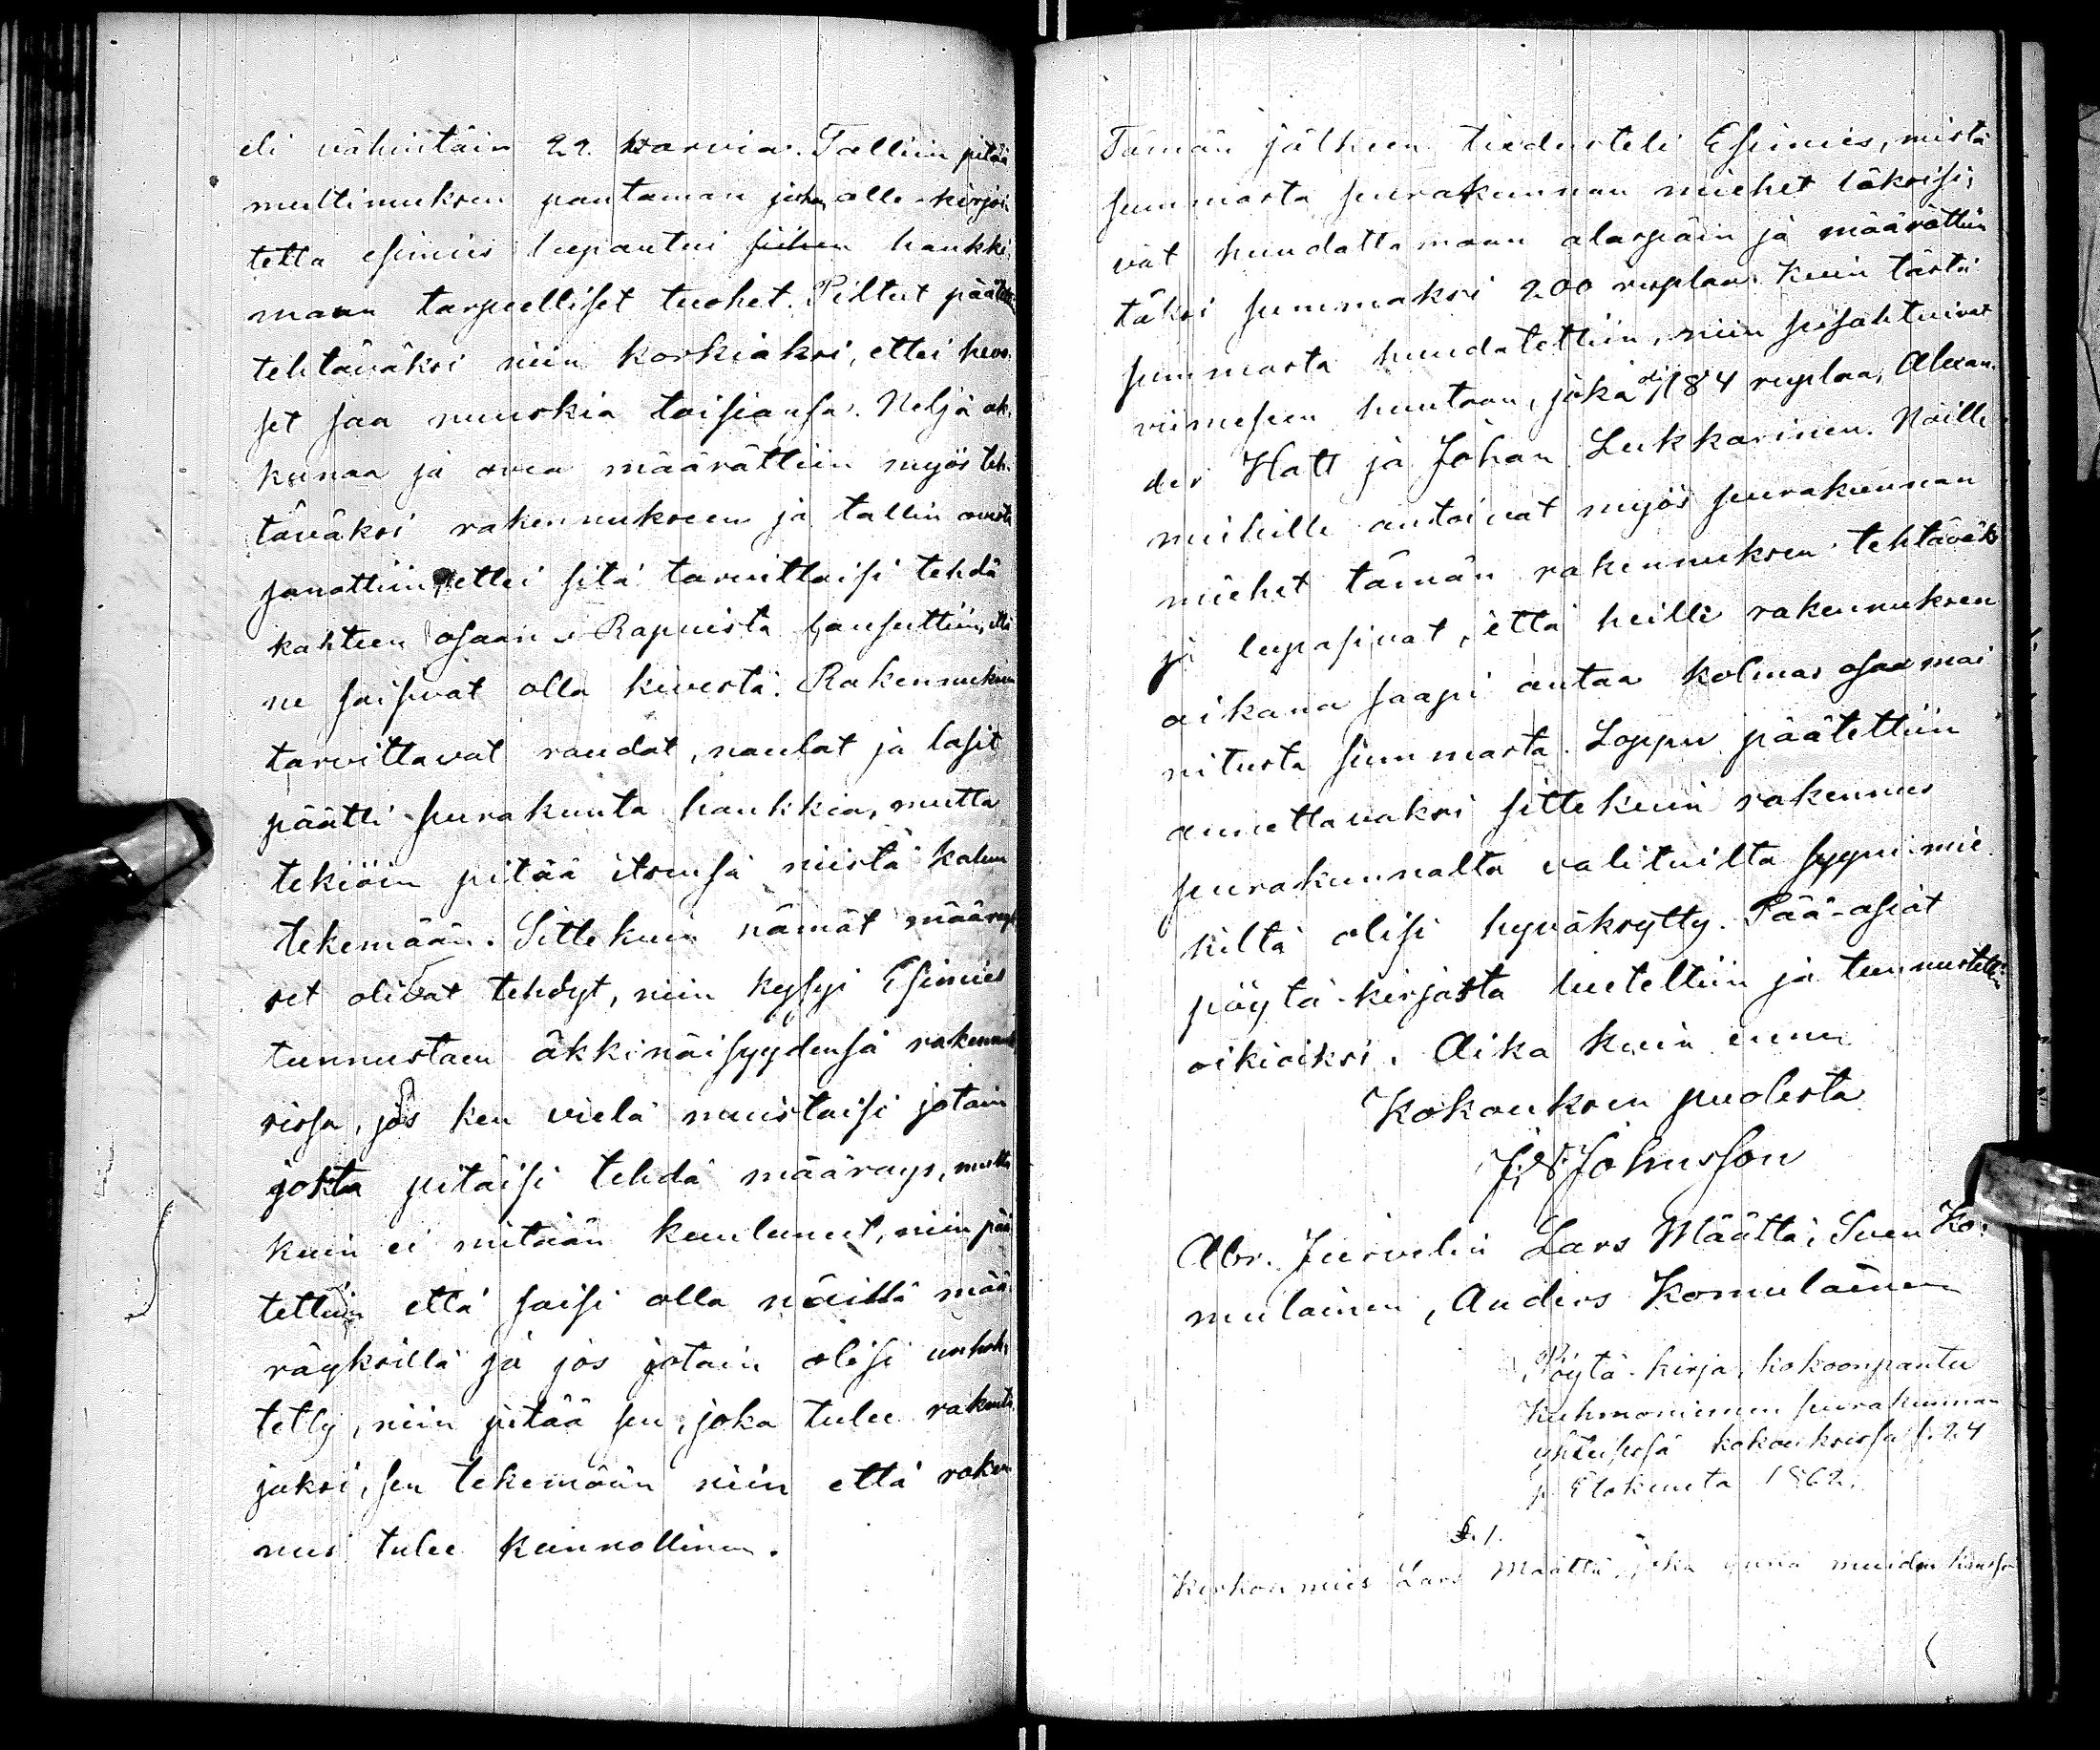 eli vähintäin 22 warvia. Talliin pitää
multimuksen pantaman johon alle-kirjoi
tettu esimies lupautui siihen hankki-
maan tarpeelliset tuohet. Piltut päätettiin
tehtäväksi niin korkiaksi, ettei hevo-
set saa nuuskia toisiansa. Neljä ak-
kunaa ja ovea määrättiin myös teh-
täväksi rakennukseen ja tallin ovesta
sanottiin, ettei sitä tarvittaisi tehdä
kahteen osaan. Rapuista lausuttiin, että
ne saisivat olla kivestä. Rakennukseen
tarvittavat raudat, naulat ja lasit
päätti seurakunta hankkia, mutta
tekiöin pitää itsensä niistä kalun
tekemään. Sittekuin nämät määräyk
set olivat tehdyt, niin kysyi Esimies
tunnustaen äkkinäisyydensä rakennuk
sissa, jos ken vielä muistaisi jotain
josta pitäisi tehdä määräys, mutta
kuin ei mitään kuulunut, niin pää
tettiin että saisi olla näillä mää-
räyksillä ja jos jotain olisi unhoh-
tetty, niin pitää sen, joka tulee rakenta-
jaksi, sen tekemään niin että raken
nus tulee kunnollinen.
Tämän jälkeen tiedusteli Esimies, mistä
summasta seurakunnan miehet läksisi-
vät huudattamaan alaspäin ja määrättiin
täksi summaksi 200 ruplaa. Kuin tästä
summasta huudatettiin, niin seisahtuivat
viimeseen huutoon, joka oli 184 ruplaa, Alexan-
der Hatt ja Johan Lukkarinen. Näille
miehille antoivat myös seurakunnan
miehet tämän rakennuksen tehtäväksi
ja lupasivat, että heille rakennuksen
aikana saapi antaa kolmas osaa mai
nitusta summasta. Loppu päätettiin
annettavaksi sittekuin rakennus
seurakunnalta valituilta syyni-mie
hiltä olisi hyväksytty. Pää-asiat
pöytä-kirjasta lueteltiin ja tunnustettiin
oikiaiksi. Aika kuin ennen
Kokouksen puolesta
J. W. Johnsson
Abr. Juvelin Lars Määttä, Sven Ko-
mulainen, Anders Komulainen
Pöytä-kirja, kokoonpantu
Kuhmoniemen seurakunnan
yhteisessä kokouksessa s. 24
p. Elokuuta 1862.
§. 1.
Kirkon mies Lars Määttä, joka ynnä muiden kanssa